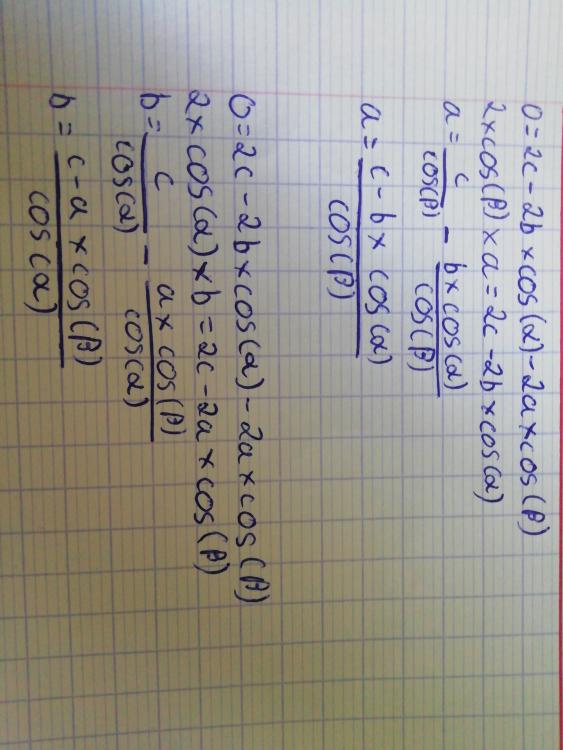 0 = 2c - 2b × cos(α) - 2a × cos(β)
2 × cos(β) × a = 2c - 2b × cos(α)
a = c/cos(β) - b × cos(α)/cos(β)
a = c - b × cos(α)/cos(β)
0 = 2c - 2b × cos(α) - 2a × cos(β)
2 × cos(α) × b = 2c - 2a × cos(β)
b = c/cos(α) - a × cos(β)/cos(α)
b = c - a × cos(β)/cos(α)